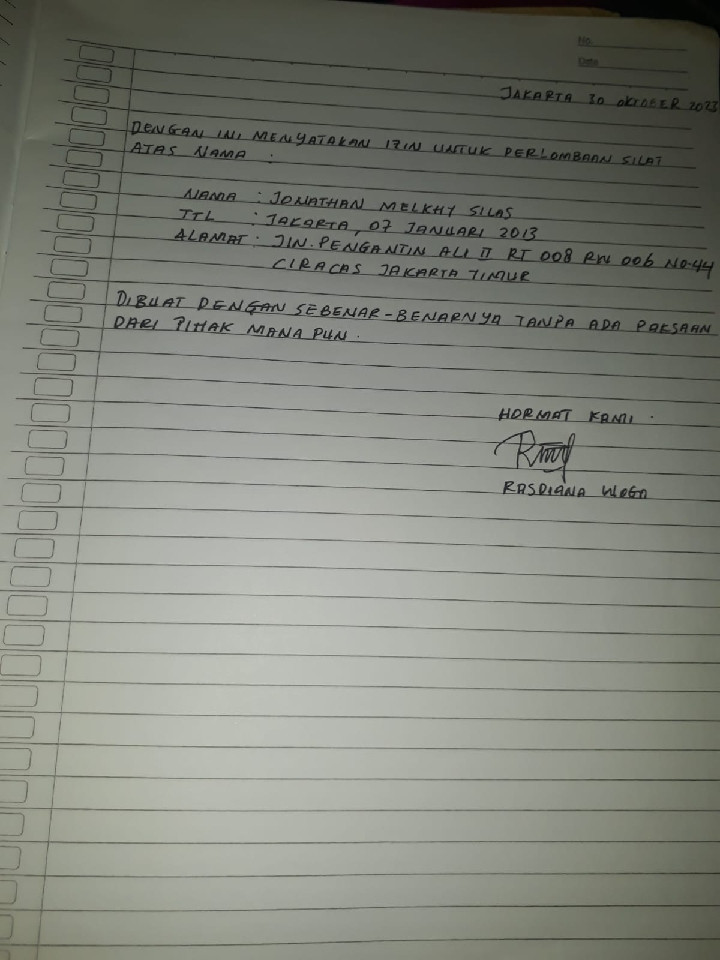 No.
Date
JAKARTA 30 OKTOBER 2023
DENGAN INI MENYATAKAN IZIN UNTUK PERLOMBAAN SILAT
ATAS NAMA :
NAMA : JONATHAN MELKHY SILAS
TTL : JAKARTA, 07 JANUARI 2013
ALAMAT : JLN. PENGANTIN ALI II RT 008 RW 006 NO.44
CIRACAS JAKARTA TIMUR
DIBUAT DENGAN SEBENAR-BENARNYA TANPA ADA PAKSAAN
DARI PIHAK MANA PUN.
HORMAT KAMI.
RASDIANA